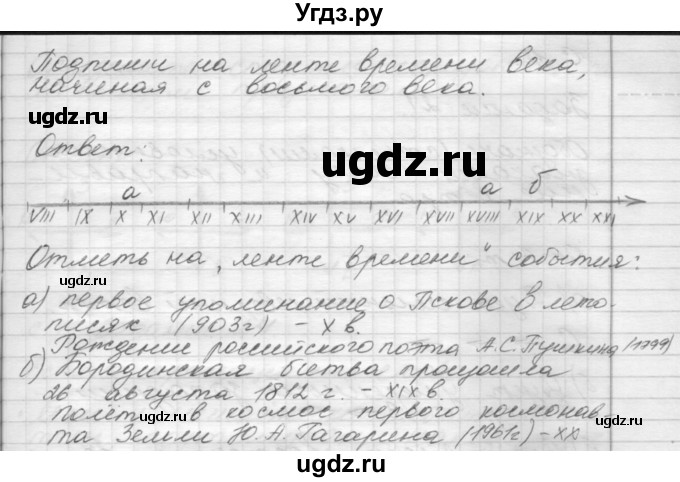 Угдз.ру
Подпиши на ленте времени века,
начиная с восьмого века.
ugdz.ru
Ответ:
ugdz.ru
а а б
VIII IX X XI XII XIII XIV XV XVI XVII XVIII XIX XX XXI
Отметь на „ленте времени" события:
ugdz.ru
а) первое упоминание о Пскове в лето-
писях (903г) – X в.
Рождении российского поэта А.С. Пушкина (1799)
б) Бородинская битва произошла
26 августа 1812 г. – XIX в.
ugdz.ru
полет в космос первого космонав-
та Земли Ю.А. Гагарина (1961г) – XX
ugdz.ru